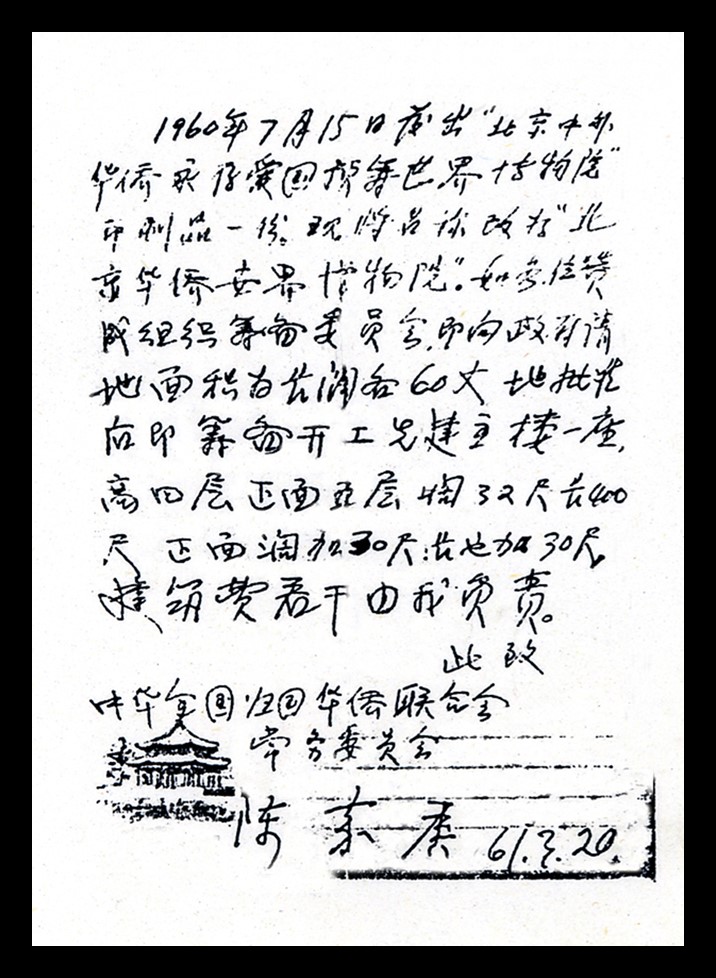 1960年7月15日 出"北京中外
华侨永存爱国 筹世界博物院"
印刷品一份。现将名称改为"北
京华侨世界博物院"。如各位赞
成组织筹备委员会,即向政府请
地面积为长阔各60丈 地批准
后即筹备开工先建主楼一座,
高四层正面五层 阔32尺长400
尺 正面阔加30尺,长也加30尺。
建筑费若干由我负责。
此致
中华全国归国华侨联合会
常务委员会
陈 庚 61.  20.